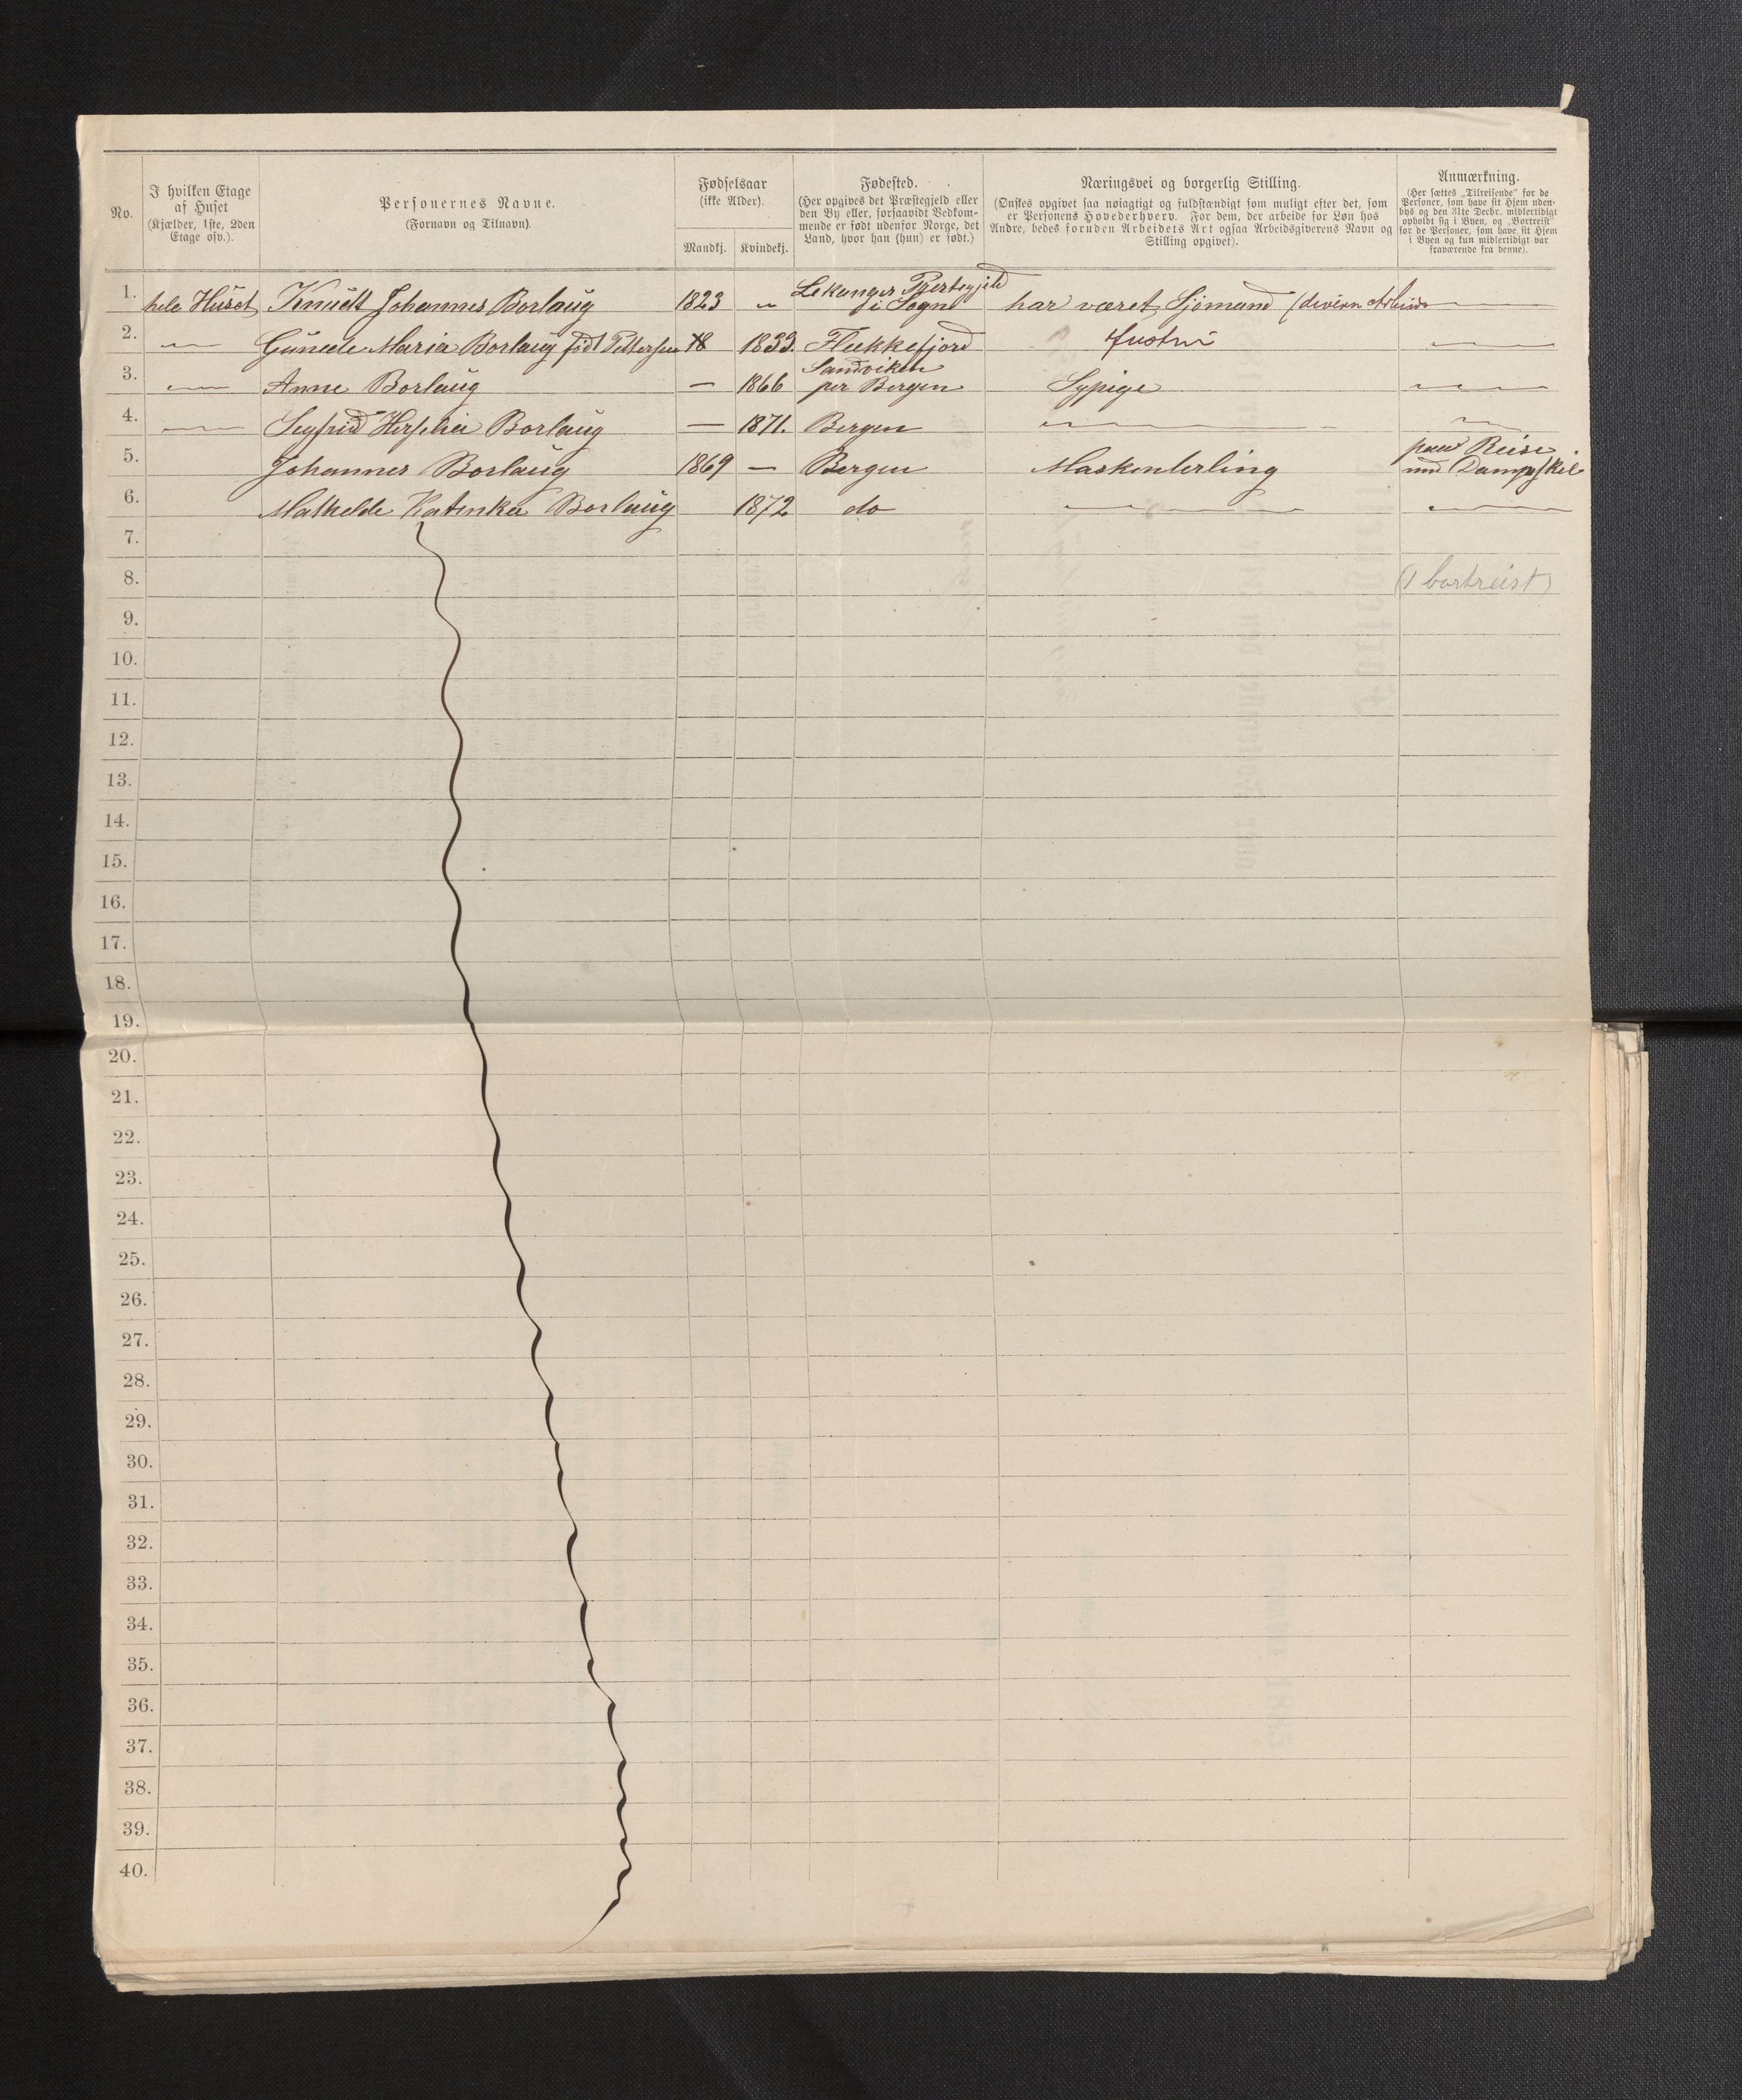 No.
I hvilken Etage
af Huset
(Kjælder, 1ste, 2den
Etage osv.).
Personernes Navne.
(Fornavn og Tilnavn).
Fødselsaar
(ikke Alder).
Mandkj. Kvindekj.
Fødested.
(Her opgives det Præstegjeld eller
den By eller, forsaavidt Vedkom-
mende er født udenfor Norge, det
Land, hvor han (hun) er født.)
Næringsvei og borgerlig Stilling.
(Ønskes opgivet saa nøiagtigt og fuldstændigt som muligt efter det, som
er Personens Hovederhverv. For dem, der arbeide for Løn hos
Andre, bedes foruden Arbeidets Art ogsaa Arbeidsgiverens Navn og
Stilling opgivet).
Anmærkning.
(Her sættes „Tilreisende“ for de
Personer, som have sit Hjem uden-
bys og den 31te Decbr. midlertidigt
opholdt sig i Byen, og „Bortreist“
for de Personer, som have sit Hjem
i Byen og kun midlertidigt var
fraværende fra denne).
1. hele Huset Knudt Johannes Borlaug 1823 " Lekanger Prestegjeld
i Sogn har været Sjömand (divers Arbeide
2. Gunele Maria Borlaug født Pettersen 18 1833. Flekkefjord Hustru
3. Anne Borlaug — 1866 Sandviken
per Bergen Sypige
4. Sigfrid Borlaug — 1871. Bergen
5. Johannes Borlaug 1869 — Bergen Maskenlerling paa Reise
med Dampskib
6. Mathelde Katinka Borlaug 1872 do
7.
8. (1 bortreist)
9.
10.
11.
12.
13.
14.
15.
16.
17.
18.
19.
20.
21.
22.
23.
24.
25.
26.
27.
28.
29.
30.
31.
32.
33.
34.
35.
36.
37.
38.
39.
40.